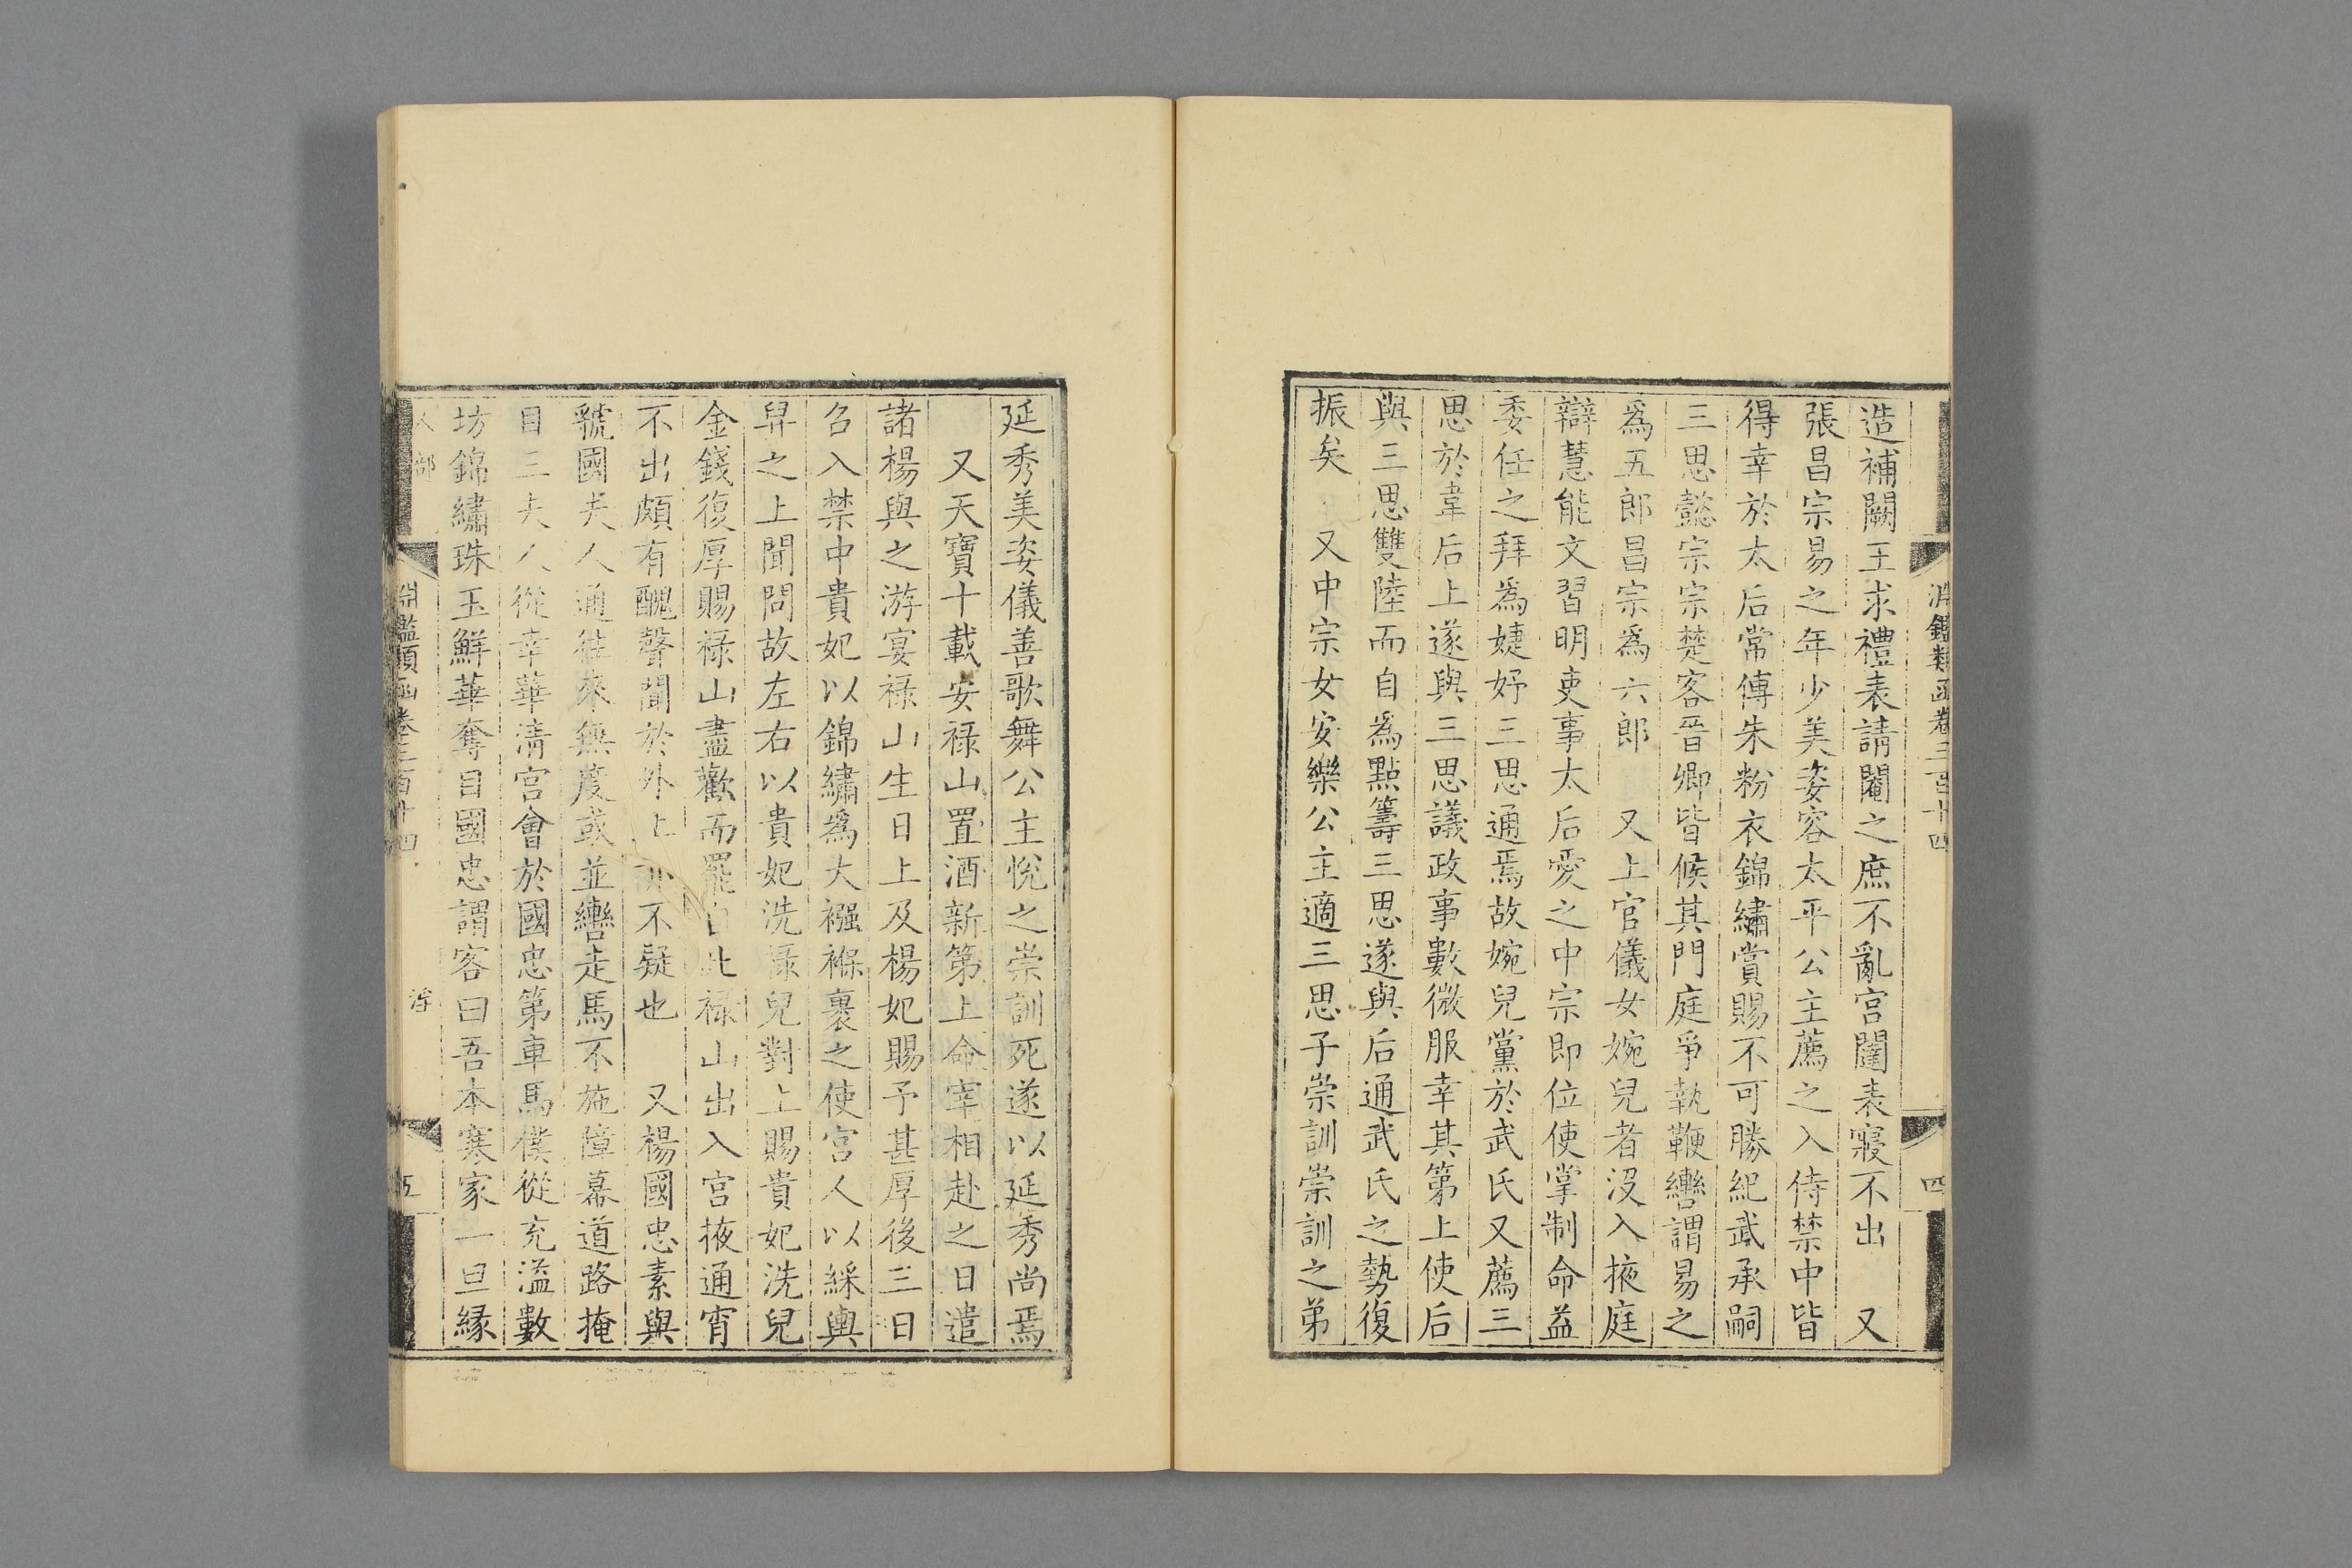 淵鑑類函卷三百十四
四
造補闕王求禮表請閹之庶不亂宮闈表寢不出　又
張昌宗易之年少美姿容太平公主薦之入侍禁中皆
得幸於太后常傅朱粉衣錦繡賞賜不可勝紀武承嗣
三思懿宗宗楚客晉卿皆候其門庭爭執鞭轡謂易之
為五郎昌宗為六郎　又上官儀女婉兒者沒入掖庭
辯慧能文習明吏事太后愛之中宗即位使掌制命益
委任之拜為婕妤三思通焉故婉兒黨於武氏又薦三
思於韋后上遂與三思議政事數微服幸其第上使后
與三思雙陸而自為點籌三思遂與后通武氏之勢復
振矣　又中宗女安樂公主適三思子崇訓崇訓之弟
延秀美姿儀善歌舞公主悅之崇訓死遂以延秀尚焉
又天寶十載安祿山置酒新第上命宰相赴之日遣
諸楊與之游宴祿山生日上及楊妃賜予甚厚後三日
召入禁中貴妃以錦繡為大襁褓裹之使宮人以綵輿
舁之上聞問故左右以貴妃洗祿兒對上賜貴妃洗兒
金錢復厚賜祿山盡歡而罷自此祿山出入宮掖通宵
不出頗有醜聲聞於外上不疑也　又楊國忠素與
虢國夫人通往來無度或並轡走馬不施障幕道路掩
目三夫人從幸華清宮會於國忠第車馬僕從充溢數
坊錦繡珠玉鮮華奪目國忠謂客曰吾本寒家一旦緣
人部
淵鑑類函卷三百十四
五